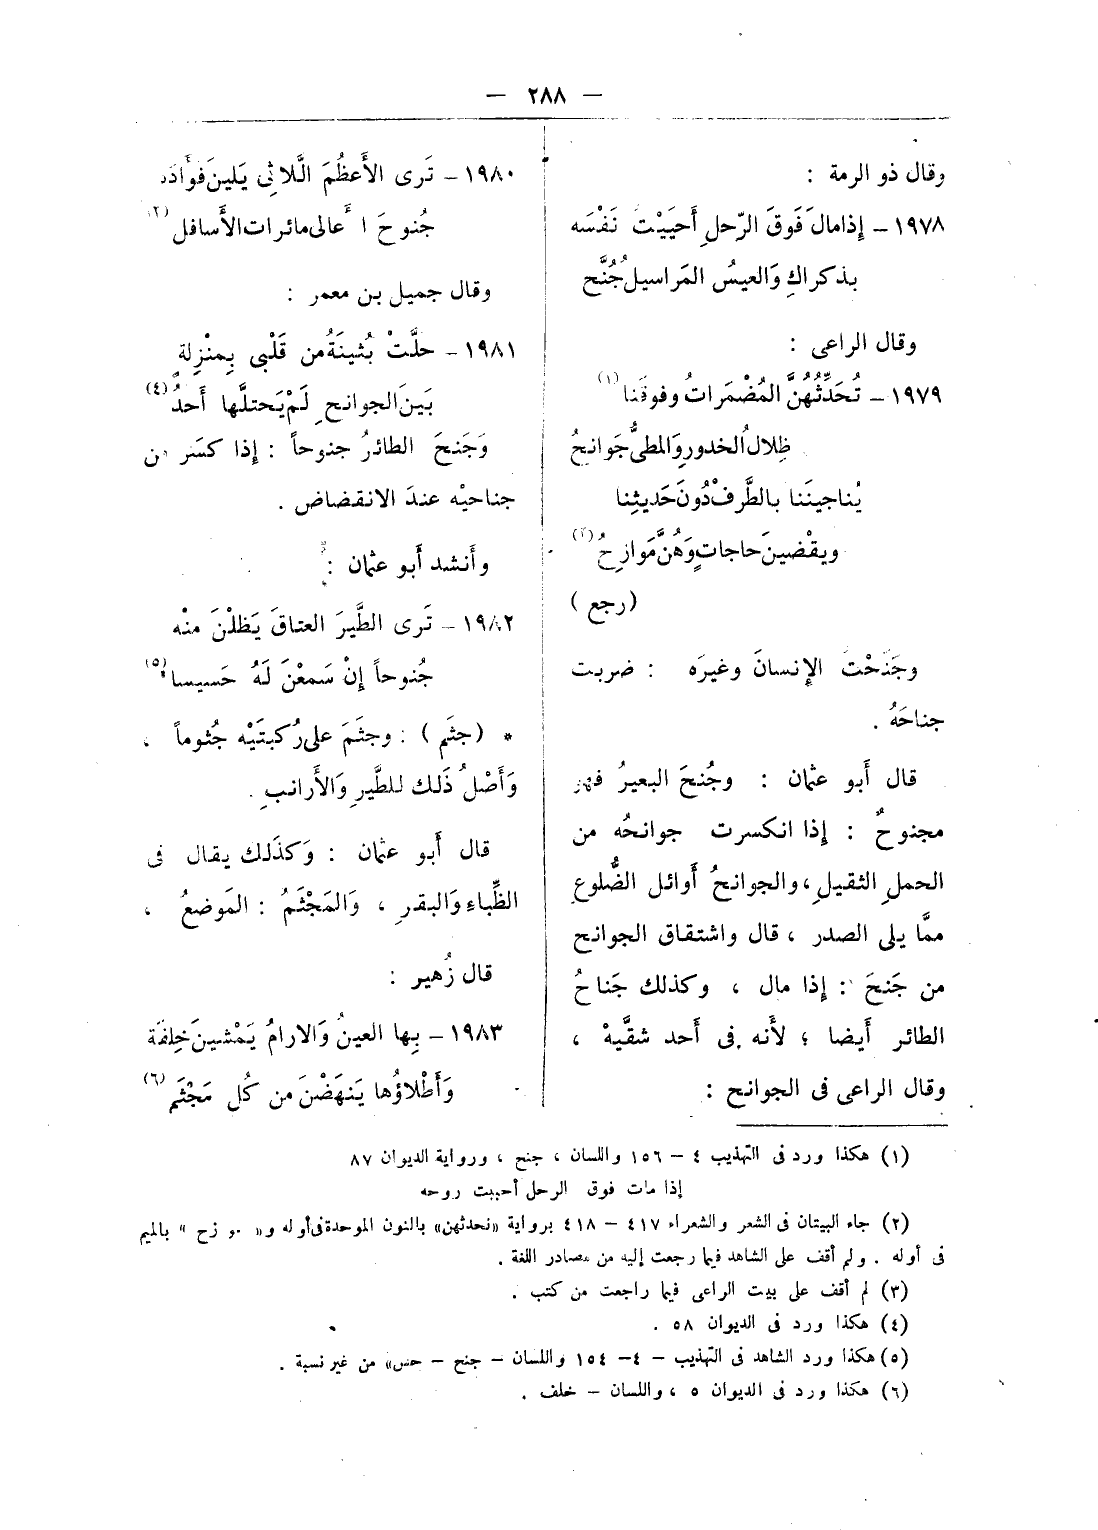 — ٢٨٨ —
وقال ذو الرمة :
١٩٧٨ – إذامالَ فَوقَ الرّحلِ أَحيَيْتْ نَفْسَه
بذكراكِ وَالعيسُ المَراسيلُ جُنَّح
وقال الراعى :
١٩٧٩ – تُحَدِّثُهُنَّ المُضْمَراتُ وفوقَنا (١)
ظِلالُ الخدورِ وَالمطىُّ جَوانحُ
يُناجينَنا بالطَّرفْ دُونَ حَديثِنا
ويقْضينَ حاجاتٍ وَهُنَّ مَوازِحُ (٢)
(رجع )
وجَنَحْتَ الإنسانَ وغيرَه : ضربت
جناحَهُ .
قال أَبو عثمان : وجُنحَ البعيرُ فهو
مجنوحٌ : إِذا انكسرت جوانحُه من
الحملِ الثقيلِ ، والجوانحُ أَوائل الضُّلوعِ
ممَّا يلى الصدر ، قال واشتقاق الجوانح
من جَنحَ : إِذا مال ، وكذلك جَناحُ
الطائر أَيضا ؛ لأَنه فى أَحد شقَّيهْ ،
وقال الراعى فى الجوانح :
١٩٨٠ – تَرى الأَعظُمَ الَّلاتِى يَلينَ فوَادَه
جُنوحَ اَعالى مائرات الأَسافل (٣)
وقال جميل بن معمر :
١٩٨١ – حلَّتْ بُثينَةُ من قَلْبى بِمنْزِلةٍ
بَينَ الجوانحِ لَمْ يَحتلَّها أَحدُ (٤)
وَجَنحَ الطائرُ جنوحاً : إِذا كسَر من
جناحيْه عندَ الانقضاض .
وأَنشد أَبو عثمان :
١٩٨٢ – تَرى الطَّيرَ العتاقَ يَظلْنَ منْه
جُنوحاً إِنْ سَمعْنَ لَهُ حَسيسا (٥)
* (جثَم ) : وجثَمَ على رُكبتَيْه جُثوماً ،
وَأَصْلُ ذَلك للطَّيرِ وَالأَرانبِ .
قال أَبو عثمان : وَكذَلك يقال فى
الظِّباءِ وَالبقرِ ، وَالمَجْثَمُ : المَوضعُ ،
قال زُهير :
١٩٨٣ – بِها العينُ وَالارامُ يَمْشينَ خِلفَة
وَأَطْلاؤُها يَنهَضْنَ من كُل مَجْثَم (٦)
(١) هكذا ورد فى التهذيب ٤ – ١٥٦ واللسان ، جنح ، ورواية الديوان ٨٧
إذا مات فوق الرحل أحييت روحه
(٢) جاء البيتان فى الشعر والشعراء ٤١٧ – ٤١٨ برواية «نحدثهن» بالنون الموحدة فى أوله و« موزح » بالميم
فى أوله . ولم أقف على الشاهد فيما رجعت إليه من مصادر اللغة .
(٣) لم أقف على بيت الراعى فيما راجعت من كتب .
(٤) هكذا ورد فى الديوان ٥٨ .
(٥) هكذا ورد الشاهد فى التهذيب – ٤– ١٥٤ واللسان – جنح – حس» من غير نسبة .
(٦) هكذا ورد فى الديوان ٥ ، واللسان – خلف .